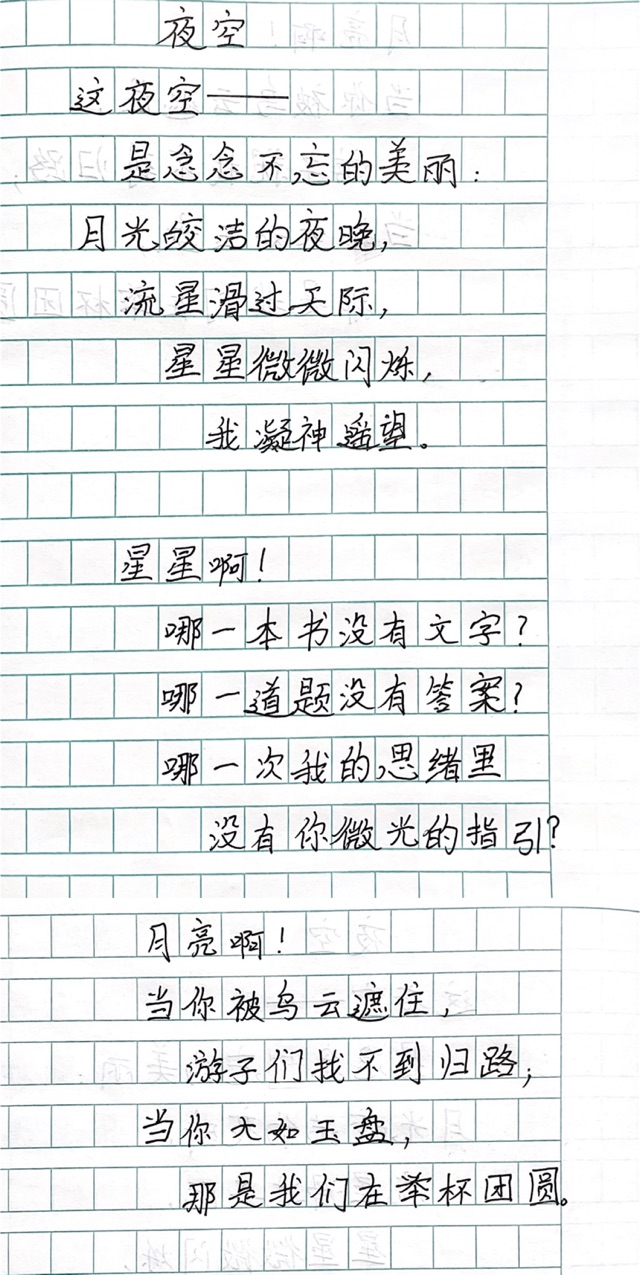 夜空
这夜空——
是念念不忘的美丽：
月光皎洁的夜晚，
流星滑过天际，
星星微微闪烁，
我凝神遥望。
星星啊！
哪一本书没有文字？
哪一道题没有答案？
哪一次我的思绪里
没有你微光的指引？
月亮啊！
当你被乌云遮住，
游子们找不到归路；
当你大如玉盘，
那是我们在举杯团圆。